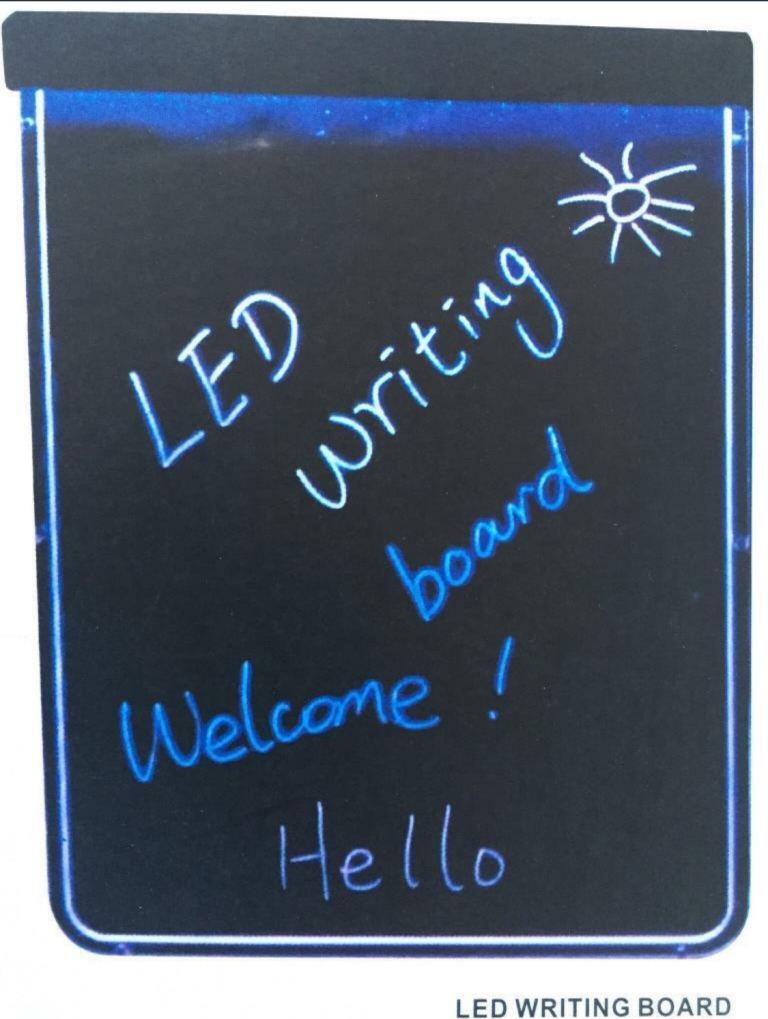 LED
writing
board
Welcome!
Hello
LED WRITING BOARD